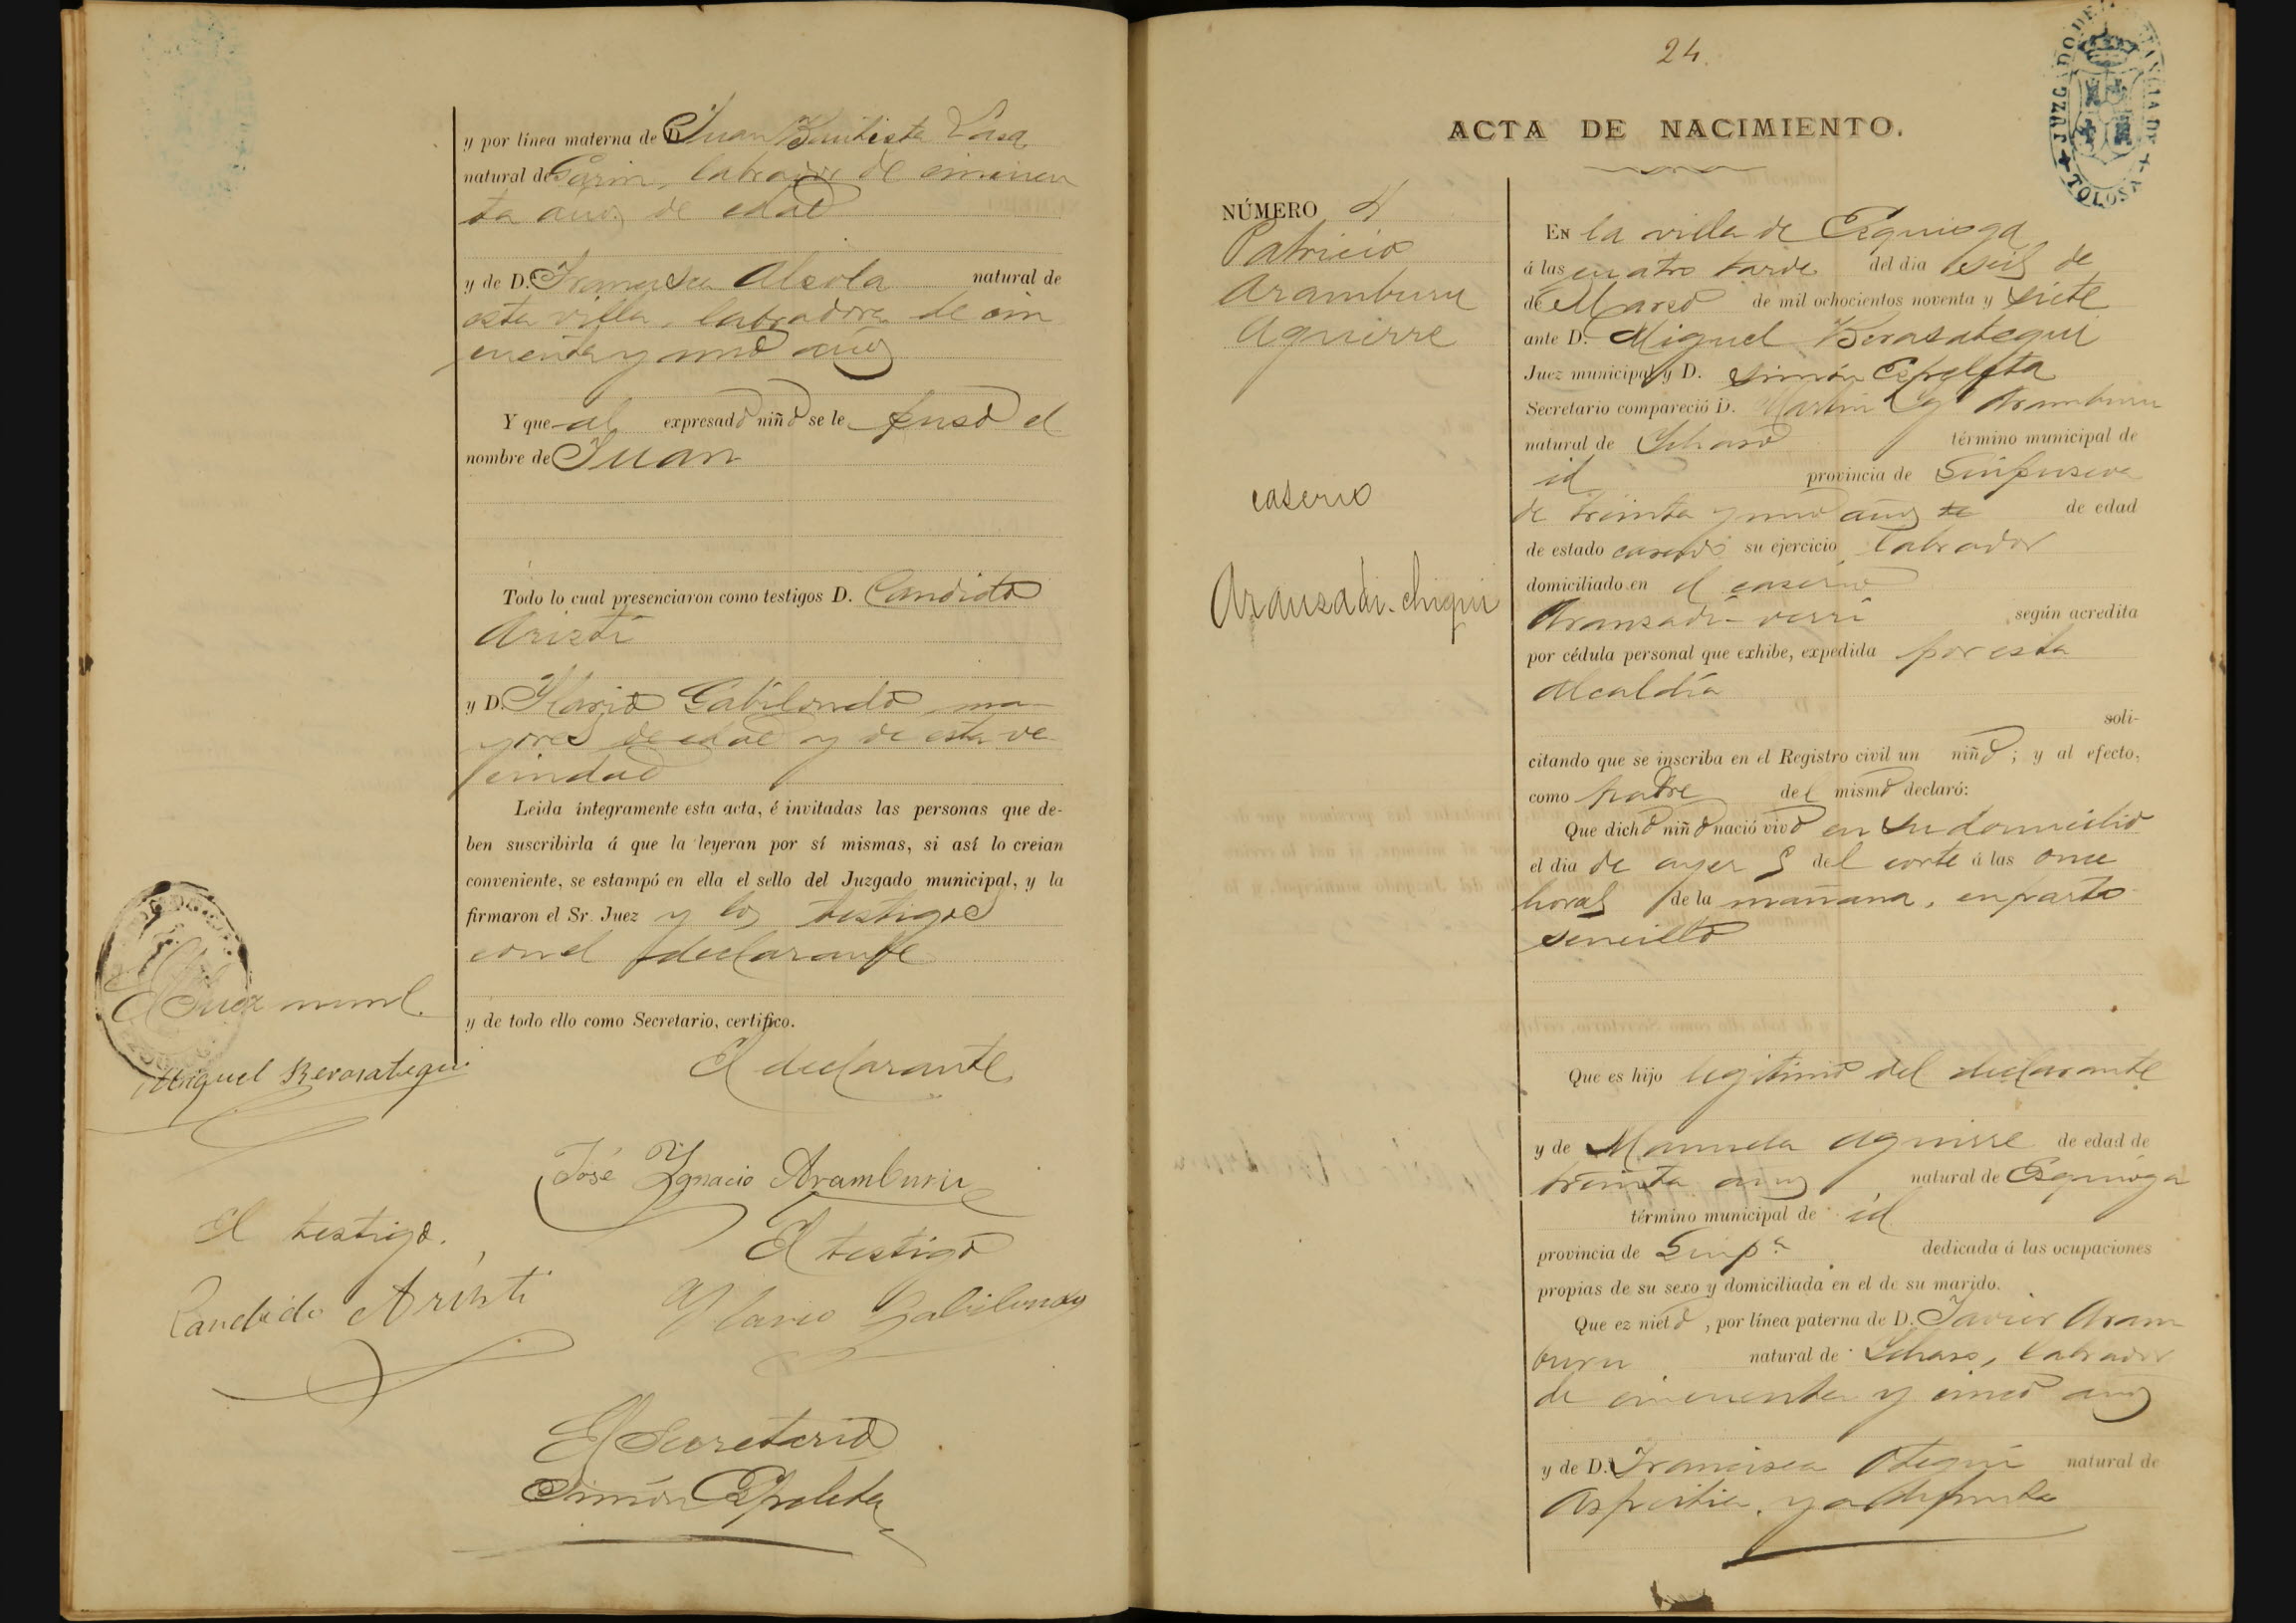 y por línea materna de D. Juan Bautista Lasa
natural de Gavin, labrador de cincuen
ta años de edad
y de D.ª Francisca Alsola natural de
esta villa, labradora de cin
cuenta y uno años
Y que al expresado niño se le puso el
nombre de Juan
Todo lo cual presenciaron como testigos D. Candido
Arizti
y D. Ylario Gabilondo, ma-
yores de edad y de esta ve-
cindad
Leida íntegramente esta acta, é invitadas las personas que de-
ben suscribirla á que la leyeran por sí mismas, si así lo creian
conveniente, se estampó en ella el sello del Juzgado municipal, y la
firmaron el Sr. Juez y los testigos
con el declarante
y de todo ello como Secretario, certifico.
El Juez munl.
Miguel Berasategui
El declarante
José Ygnacio Aramburu
El testigo.
Candido Aristi
El testigo
Ylario Gabilondo
El Secretario
Simón Ezpeleta
24.
JUZGADO DE INSTANCIA DE TOLOSA
ACTA DE NACIMIENTO.
NÚMERO 4
Patricio
Aramburu
Aguirre
caserio
Aranzadi-chiqui
EN la villa de Ezquioga
á las cuatro tarde del dia seis de
de Marzo de mil ochocientos noventa y siete
ante D. Miguel Berasategui
Juez municipal y D. Simón Ezpeleta
Secretario compareció D. Martin Aramburu
natural de Ychaso término municipal de
id provincia de Guipuzcoa
de treinta y uno años de de edad
de estado casado su ejercicio labrador
domiciliado en el caserio
Aranzadi-verri según acredita
por cédula personal que exhibe, expedida por esta
Alcaldía
soli-
citando que se inscriba en el Registro civil un niño; y al efecto,
como padre del mismo declaró:
Que dicho niño nació vivo en su domicilio
el dia de ayer 5 del corte á las once
horas de la mañana, en parto
sencillo
Que es hijo legitimo del declarante
y de Manuela Aguirre de edad de
treinta años natural de Ezquioga
término municipal de id
provincia de Guipª dedicada á las ocupaciones
propias de su sexo y domiciliada en el de su marido.
Que ez nieto, por línea paterna de D. Javier Aram
buru natural de Ychaso, labrador
de cincuenta y cinco años
y de D.ª Francisca Otegui natural de
Azpeitia, ya difunta